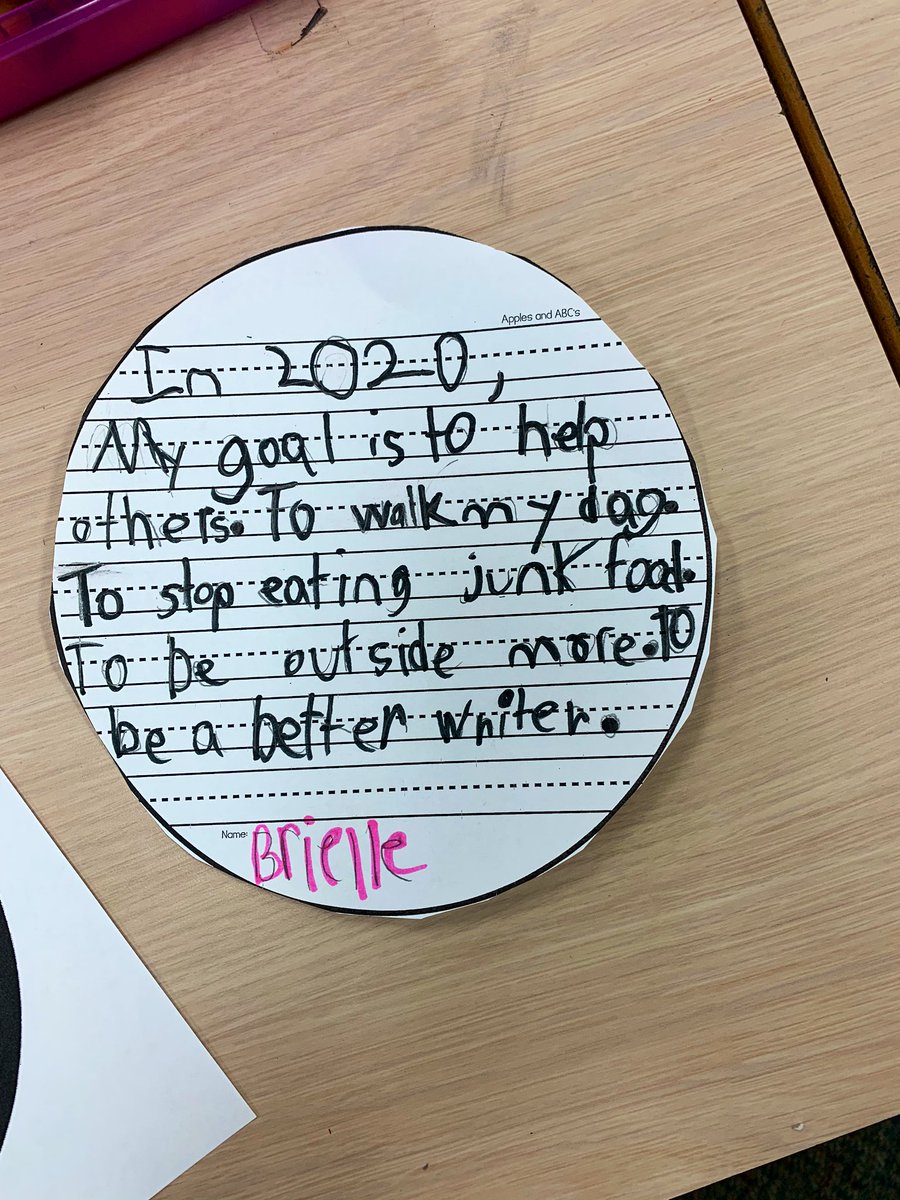 Apples and ABC's
In 2020,
My goal is to help
others. To walk my dog.
To stop eating junk food.
To be outside more. To
be a better writer.
Name: Brielle